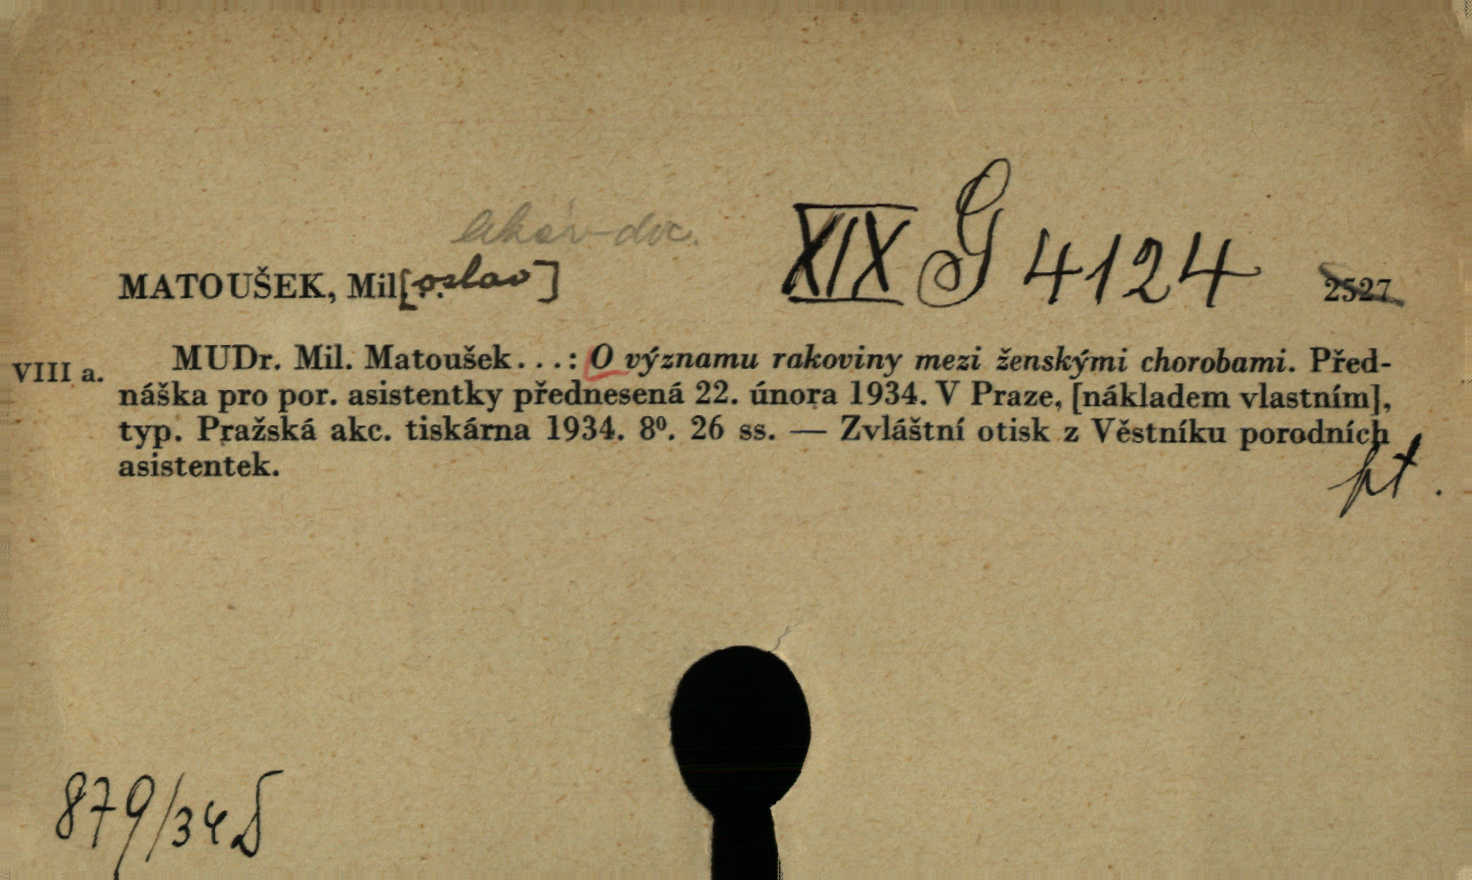 lékař-doc.
XIX G 4124
MATOUŠEK, Mil[oslav]
2527
VIII a.
MUDr. Mil. Matoušek...: O významu rakoviny mezi ženskými chorobami. Před-
náška pro por. asistentky přednesená 22. února 1934. V Praze, [nákladem vlastním],
typ. Pražská akc. tiskárna 1934. 8⁰. 26 ss. — Zvláštní otisk z Věstníku porodních
asistentek.
879/34